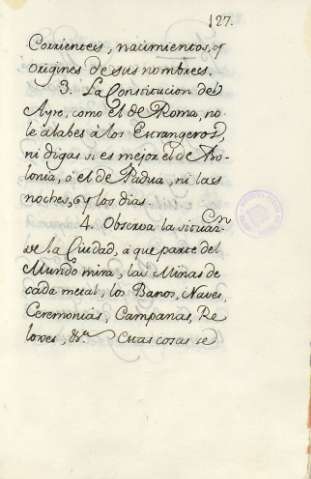 127.
Corrientes, nacimientos, y
origines de sus nombres.
3. La Constitucion del
Ayre, como el de Roma, no
le alabes à los Extrangeros,
ni digas si es mejor el de Bo-
lonia, ò el de Padua, ni las
noches, ò y los dias.
4. Observa la situan.
de la Ciudad, a que parte del
Mundo mira, las Minas de
cada metal, los Banos, Naves,
Ceremonias, Campanas, Re-
loxes, &a. Cuias cosas se